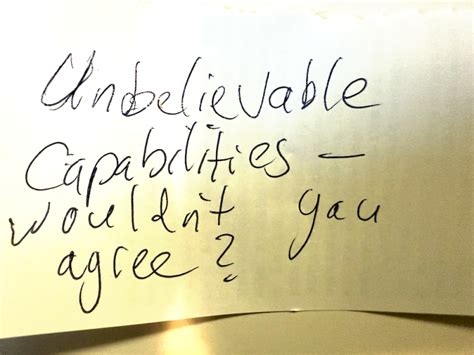 Unbelievable
Capabilities –
wouldn't you
agree?